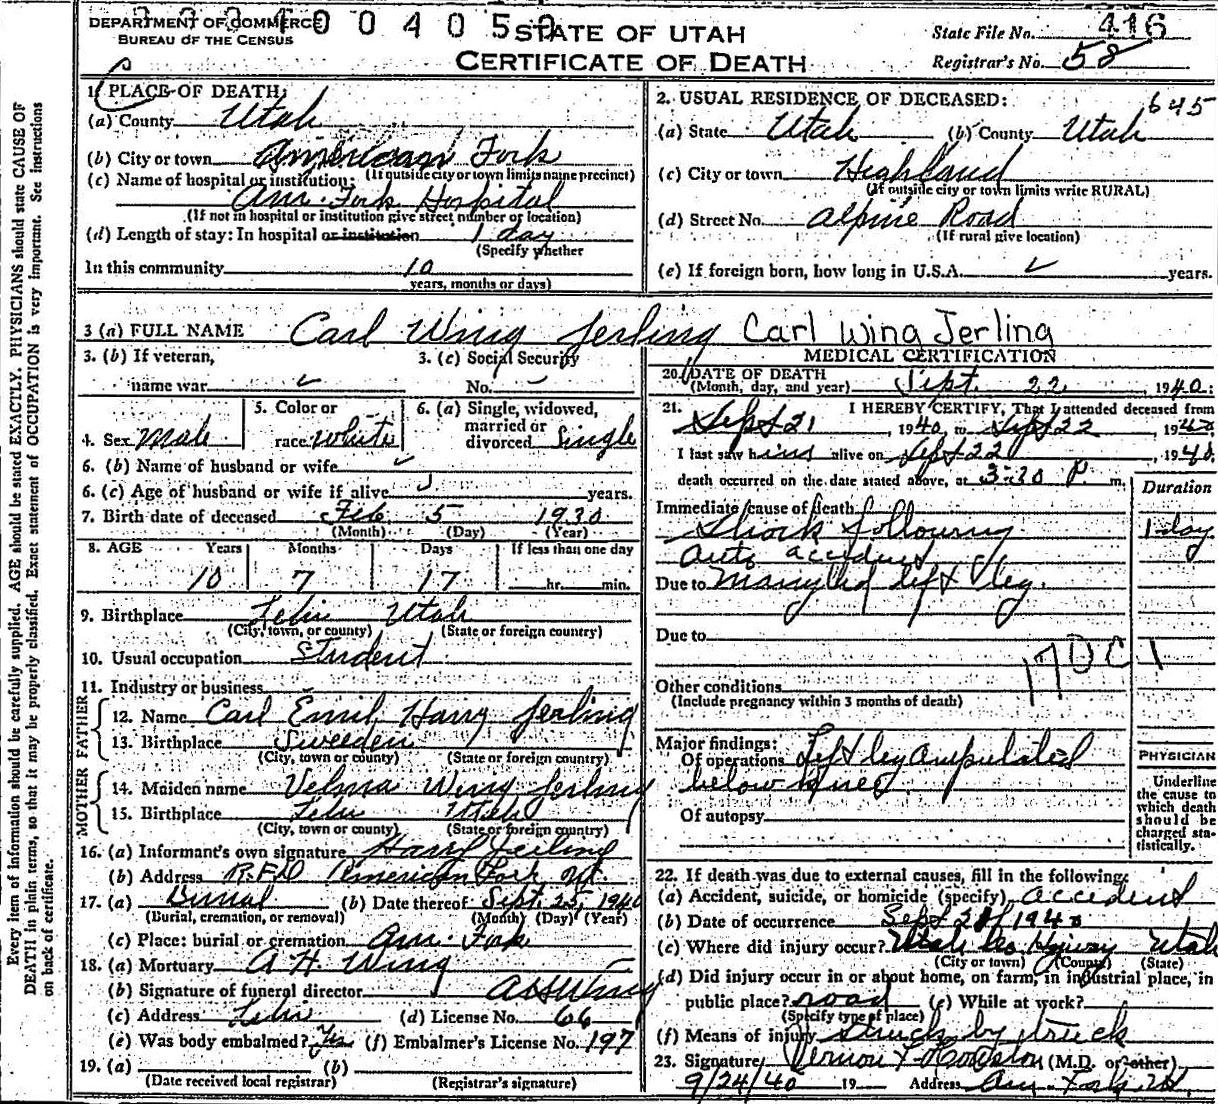 DEPARTMENT OF COMMERCE
BUREAU OF THE CENSUS
0 0 4 0 5
STATE OF UTAH
CERTIFICATE OF DEATH
State File No. 416
Registrar's No. 58
1. PLACE OF DEATH:
(a) County Utah
(b) City or town American Fork
(If outside city or town limits name precinct)
(c) Name of hospital or institution:
Am. Fork Hospital
(If not in hospital or institution give street number or location)
(d) Length of stay: In hospital or institution 1 day
(Specify whether
In this community 10
years, months or days)
2. USUAL RESIDENCE OF DECEASED: 645
(a) State Utah (b) County Utah
(c) City or town Highland
(If outside city or town limits write RURAL)
(d) Street No. Alpine Road
(If rural give location)
(e) If foreign born, how long in U.S.A. years.
3 (a) FULL NAME Carl Wing Jerling Carl Wing Jerling
3. (b) If veteran, name war
3. (c) Social Security No.
4. Sex Male
5. Color or race White
6. (a) Single, widowed, married or divorced Single
6. (b) Name of husband or wife
6. (c) Age of husband or wife if alive years.
7. Birth date of deceased Feb 5 1930
(Month) (Day) (Year)
8. AGE Years Months Days If less than one day
10 7 17 hr. min.
9. Birthplace Lehi Utah
(City, town, or county) (State or foreign country)
10. Usual occupation Student
11. Industry or business
FATHER
12. Name Carl Emil Harry Jerling
13. Birthplace Sweeden
(City, town or county) (State or foreign country)
MOTHER
14. Maiden name Velma Wing Jerling
15. Birthplace Lehi Utah
(City, town or county) (State or foreign country)
16. (a) Informant's own signature Harry Jerling
(b) Address R.F.D American Fork Ut.
17. (a) Burial (b) Date thereof Sept. 25, 1940
(Burial, cremation, or removal) (Month) (Day) (Year)
(c) Place: burial or cremation Am. Fork
18. (a) Mortuary A H. Wing
(b) Signature of funeral director
(c) Address Lehi (d) License No. 66
(e) Was body embalmed? Yes (f) Embalmer's License No. 197
19. (a) (b)
(Date received local registrar) (Registrar's signature)
MEDICAL CERTIFICATION
20. DATE OF DEATH
(Month, day, and year) Sept. 22 1940.
21. I HEREBY CERTIFY, That I attended deceased from
Sept 21, 1940, to Sept 22 1940
I last saw him alive on Sept 22, 1940.
death occurred on the date stated above, at 3:30 P. m.
Duration
Immediate cause of death
Shock following 1 day
auto accident
Due to Mangled left leg.
Due to
170 C 1
Other conditions
(Include pregnancy within 3 months of death)
Major findings:
Of operations Left leg amputated
below knee.
Of autopsy
PHYSICIAN
Underline the cause to which death should be charged statistically.
22. If death was due to external causes, fill in the following:
(a) Accident, suicide, or homicide (specify) accident
(b) Date of occurrence Sept 21 1940
(c) Where did injury occur? Utah Co Hyway Utah
(City or town) (County) (State)
(d) Did injury occur in or about home, on farm, in industrial place, in
public place? road (e) While at work?
(Specify type of place)
(f) Means of injury struck by truck
23. Signature Vernon (M.D. or other)
9/24/40 19 Address Am. Fork Ut.
Every item of information should be carefully supplied. AGE should be stated EXACTLY. PHYSICIANS should state CAUSE OF
DEATH in plain terms, so that it may be properly classified. Exact statement of OCCUPATION is very important. See instructions
on back of certificate.